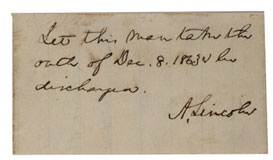 Let this man take the
oath of Dec. 8. 1863 & be
discharged.
A. Lincoln